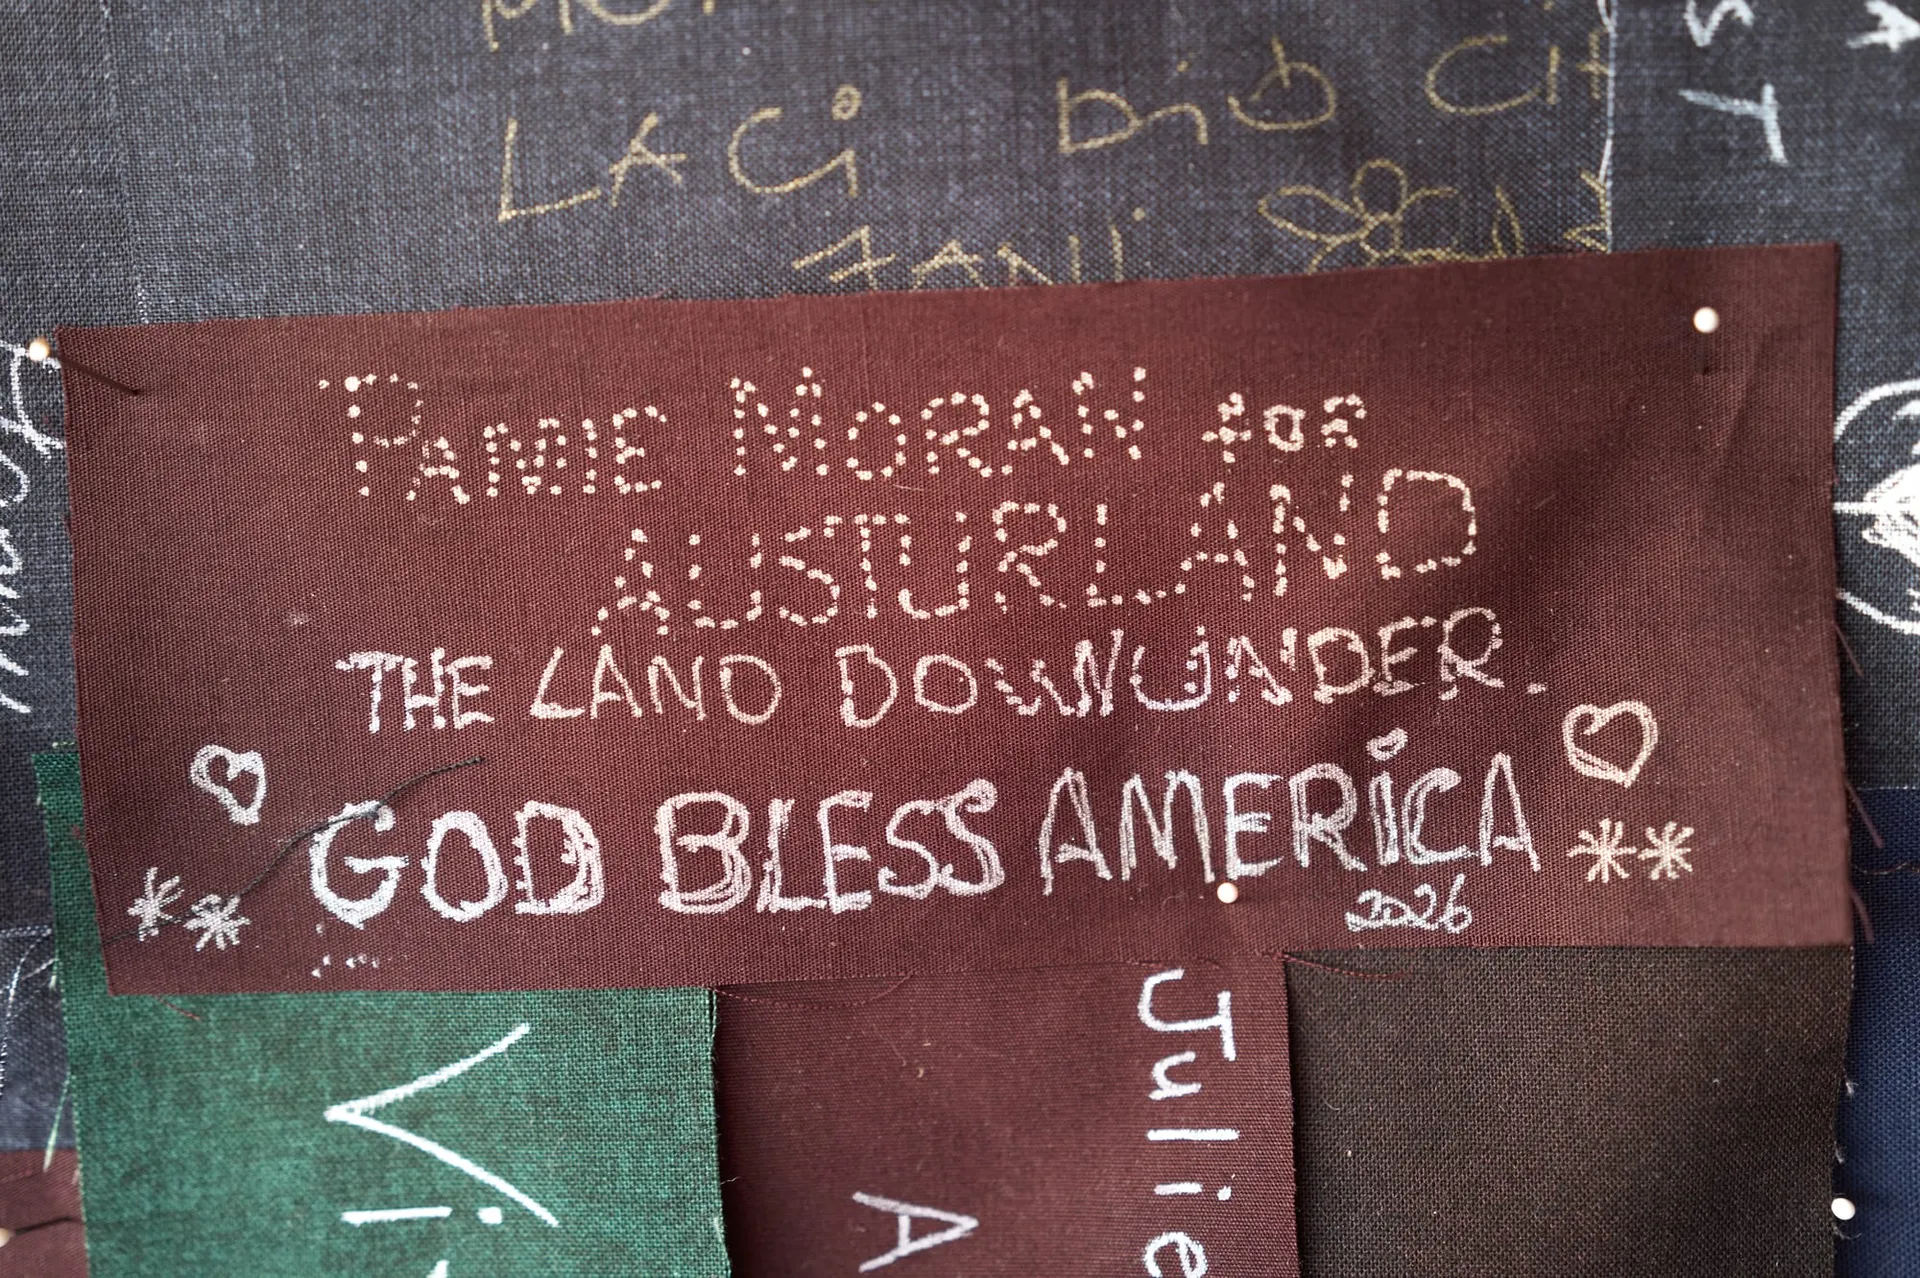 LACi
PAMIE MORAN FOR
AUSTURLAND
THE LAND DOWNUNDER.
GOD BLESS AMERICA
2026
Julie
A